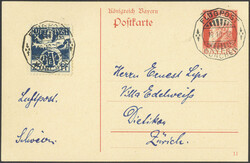 Königreich Bayern
Postkarte
Herrn Ernest Lips
Villa Edelweiss
Luftpost.
Dietikon
Schweiz
Zürich.